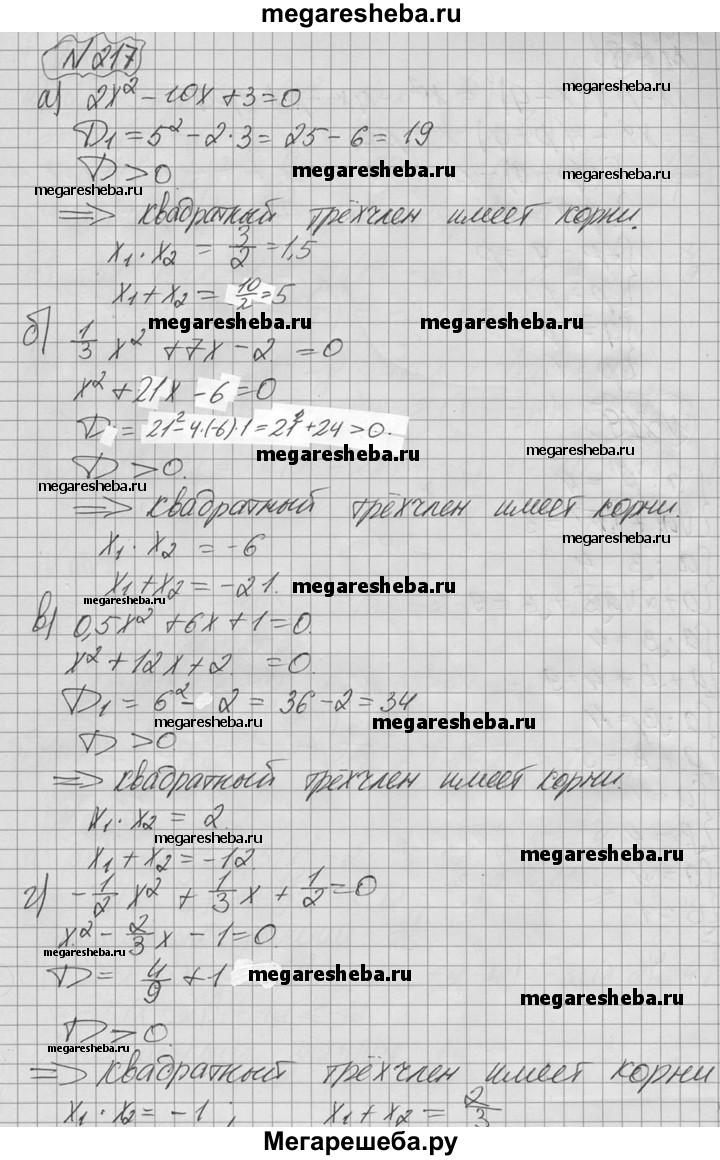 megaresheba.ru
N 217
а) 2x² - 10x + 3 = 0 megaresheba.ru
D₁ = 5² - 2·3 = 25 - 6 = 19
D > 0 megaresheba.ru megaresheba.ru
megaresheba.ru
=> квадратный трёхчлен имеет корни.
x₁ · x₂ = 3/2 = 1,5
x₁ + x₂ = 10/2 = 5
megaresheba.ru megaresheba.ru
б) 1/3 x² + 7x - 2 = 0
x² + 21x - 6 = 0
D = 21² - 4·(-6)·1 = 21² + 24 > 0.
megaresheba.ru megaresheba.ru
D > 0.
megaresheba.ru
=> квадратный трёхчлен имеет корни.
x₁ · x₂ = -6 megaresheba.ru
x₁ + x₂ = -21. megaresheba.ru
megaresheba.ru
в) 0,5x² + 6x + 1 = 0.
x² + 12x + 2 = 0.
D₁ = 6² - 2 = 36 - 2 = 34
megaresheba.ru megaresheba.ru
D > 0
=> квадратный трёхчлен имеет корни.
x₁ · x₂ = 2.
megaresheba.ru
x₁ + x₂ = -12. megaresheba.ru
г) -1/2 x² + 1/3 x + 1/2 = 0
x² - 2/3 x - 1 = 0.
megaresheba.ru
D = 4/9 + 1 megaresheba.ru
megaresheba.ru
D > 0.
megaresheba.ru
=> квадратный трёхчлен имеет корни
x₁ · x₂ = -1 ; x₁ + x₂ = 2/3
Мегарешеба.ру